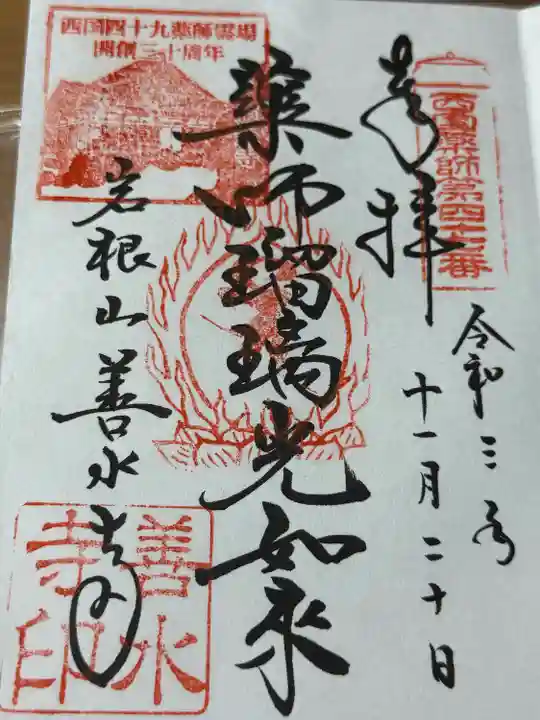 西国薬師第四十七番
奉拝
令和三年
十一月二十日
薬師瑠璃光如来
西国四十九薬師霊場
開創三十周年
岩根山善水寺
善水
寺印